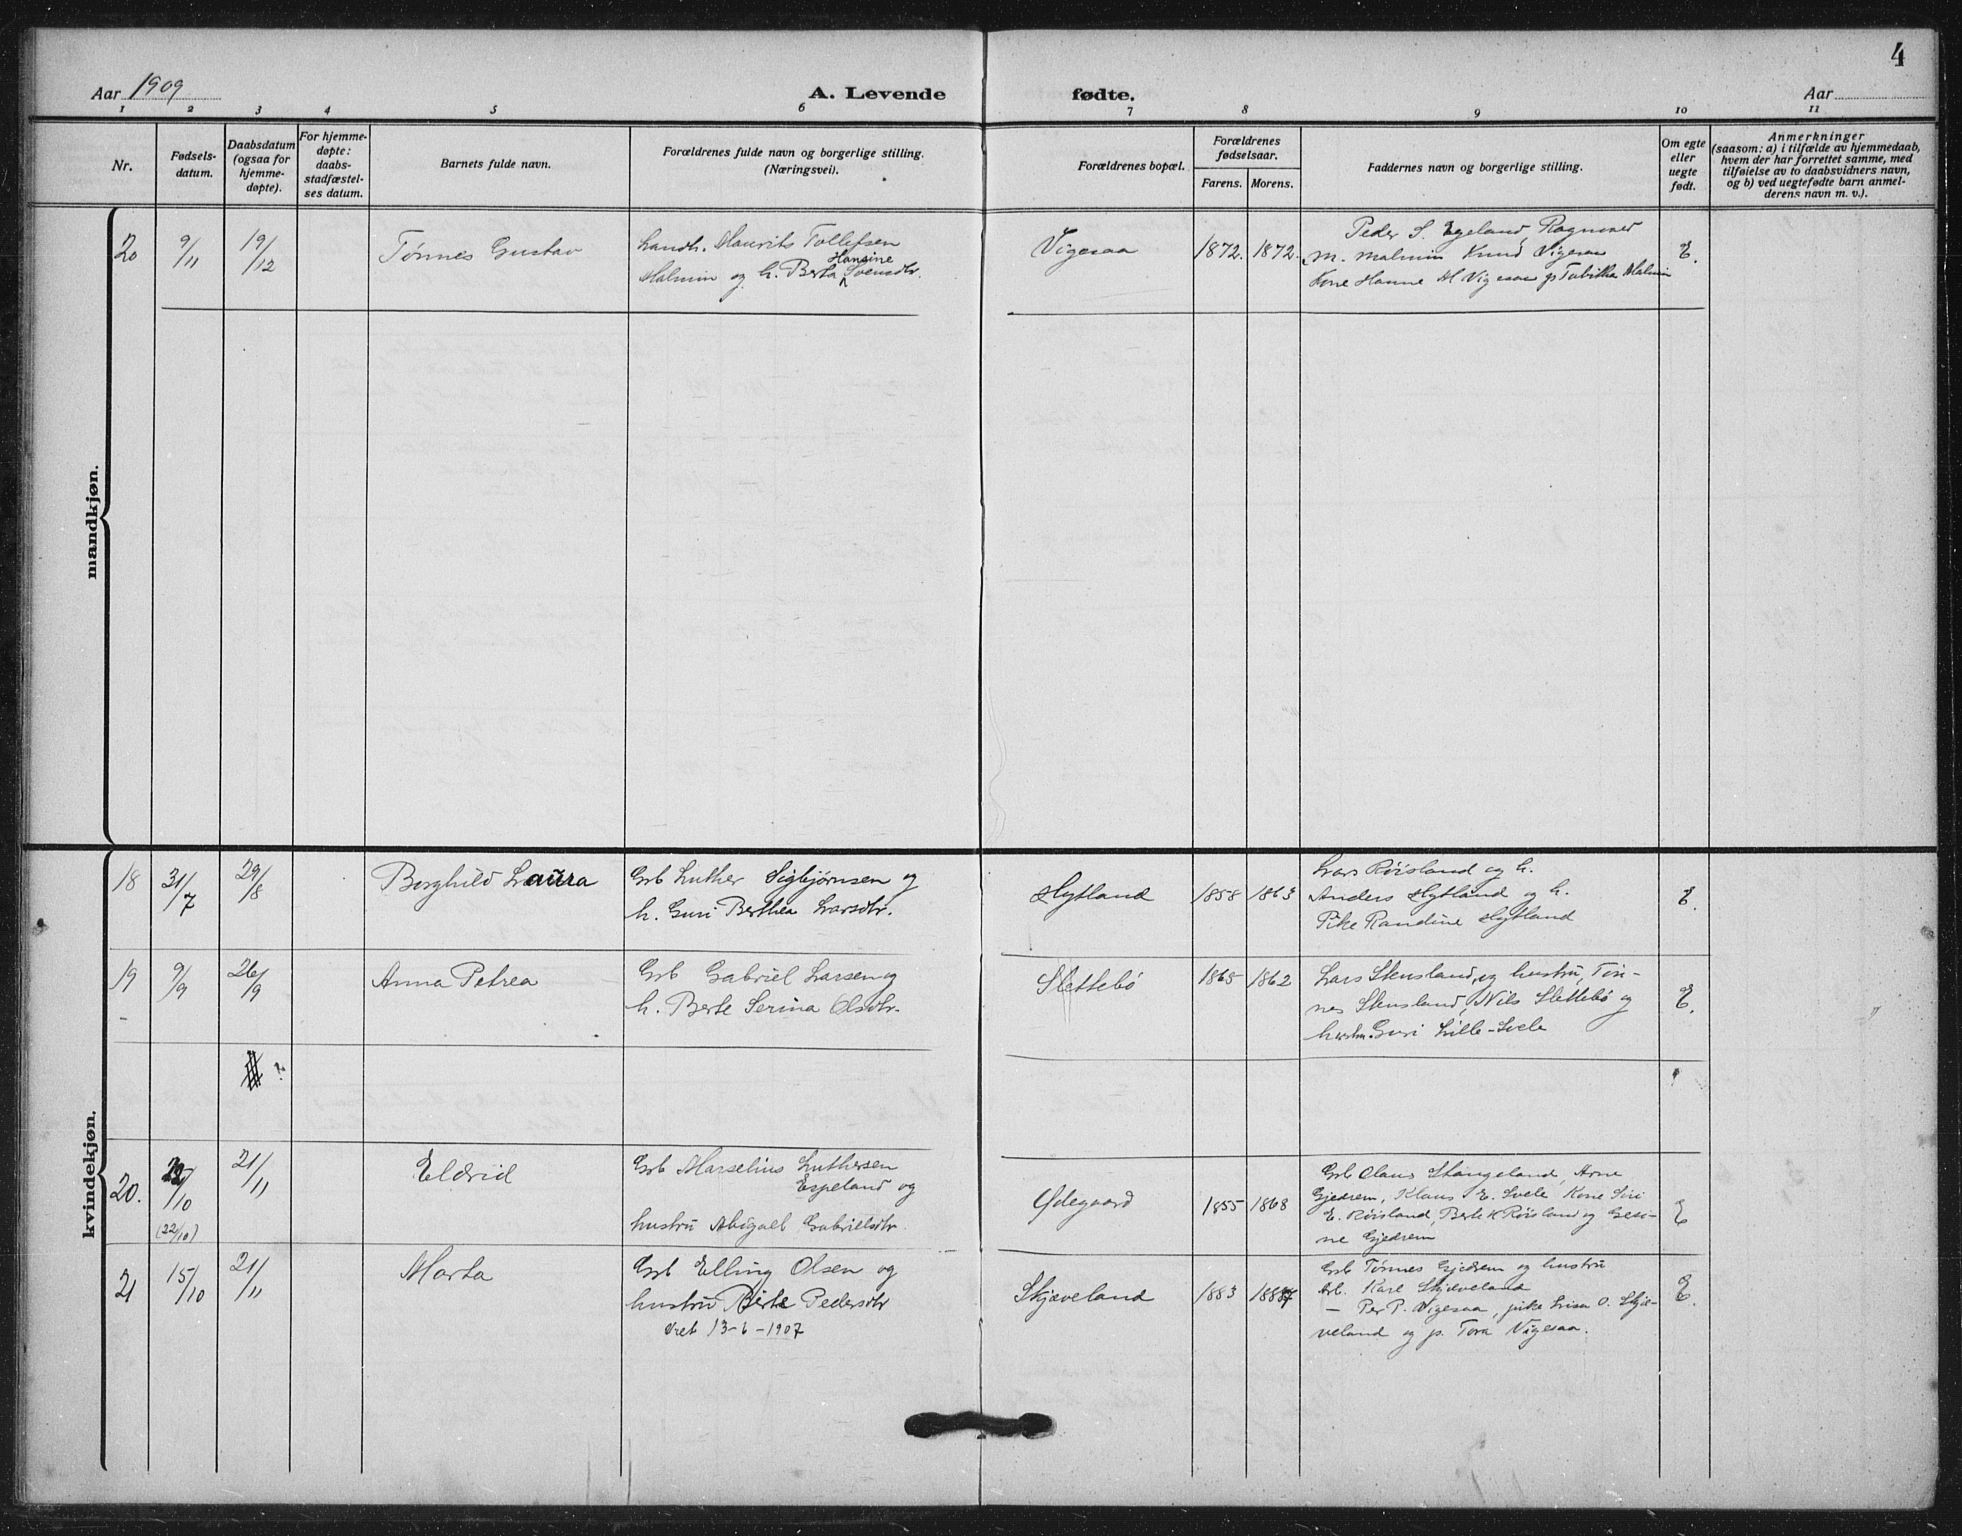 4
Aar 1909
A. Levende
fødte.
Aar
1 2 3 4 5 6 7 8 9 10 11
Nr.
Fødsels-
datum.
Daabsdatum
(ogsaa for
hjemme-
døpte).
For hjemme-
døpte:
daabs-
stadfæstel-
ses datum.
Barnets fulde navn.
Forældrenes fulde navn og borgerlige stilling.
(Næringsvei).
Forældrenes bopæl.
Forældrenes
fødselsaar.
Farens. Morens.
Faddernes navn og borgerlige stilling.
Om egte
eller
uegte
født.
Anmerkninger
(saasom: a) i tilfælde av hjemmedaab,
hvem der har forrettet samme, med
tilføielse av to daabsvidners navn,
og b) ved uegtefødte barn anmel-
derens navn m. v.).
mandkjøn.
20
9/11
19/12
Tønnes Gustav
Landh. Maurits Tollefsen
Hansine
Malmin og h. Berta Svensdtr.
Vigesaa
1872. 1872.
Peder S. Egeland Ragnvald
M. Malmin Knud Vigesaa
Kone Hanne M Vigesaa p Tabitha Malmin
E.
kvindekjøn.
18
31/7
29/8
Borghild Laura
Grb Luther Sigbjørnsen og
h. Guri Berthea Larsdtr.
Hytland
1858 1863
Lars Røisland og h.
Anders Hytland og h.
Pike Randine Hytland
E.
19
9/9
26/9
Anna Petrea
Grb Gabriel Larsen og
h. Berte Serina Olsdtr.
Slettebø
1865 1862
Lars Stensland, og hustru, Tøn-
nes Stensland, Nils Slettebø og
hustru Guri Lille-Svele
E.
20.
/10
(22/10)
21/11
Eldrid
Grb Marselius Luthersen
Espeland og
hustru Abigael Gabrielsdtr.
Ødegaard
1855 1868
Grb Olaus Stangeland, Arne
Gjedrem, Klaus E. Svele Kone Siri
E. Røisland, Berte K Røisland og Gesi-
ne Gjedrem
E
21
15/10
21/11
Marta
Grb Elling Olsen og
hustru Berte Pedersdtr
Vret 13-6-1907
Skjæveland
1883 1887
Grb Tønnes Gjedrem og hustru
Arb. Karl Skjæveland
— Per P. Vigesaa, pike Lisa O. Skjæ-
veland og p. Tora Vigesaa.
E.